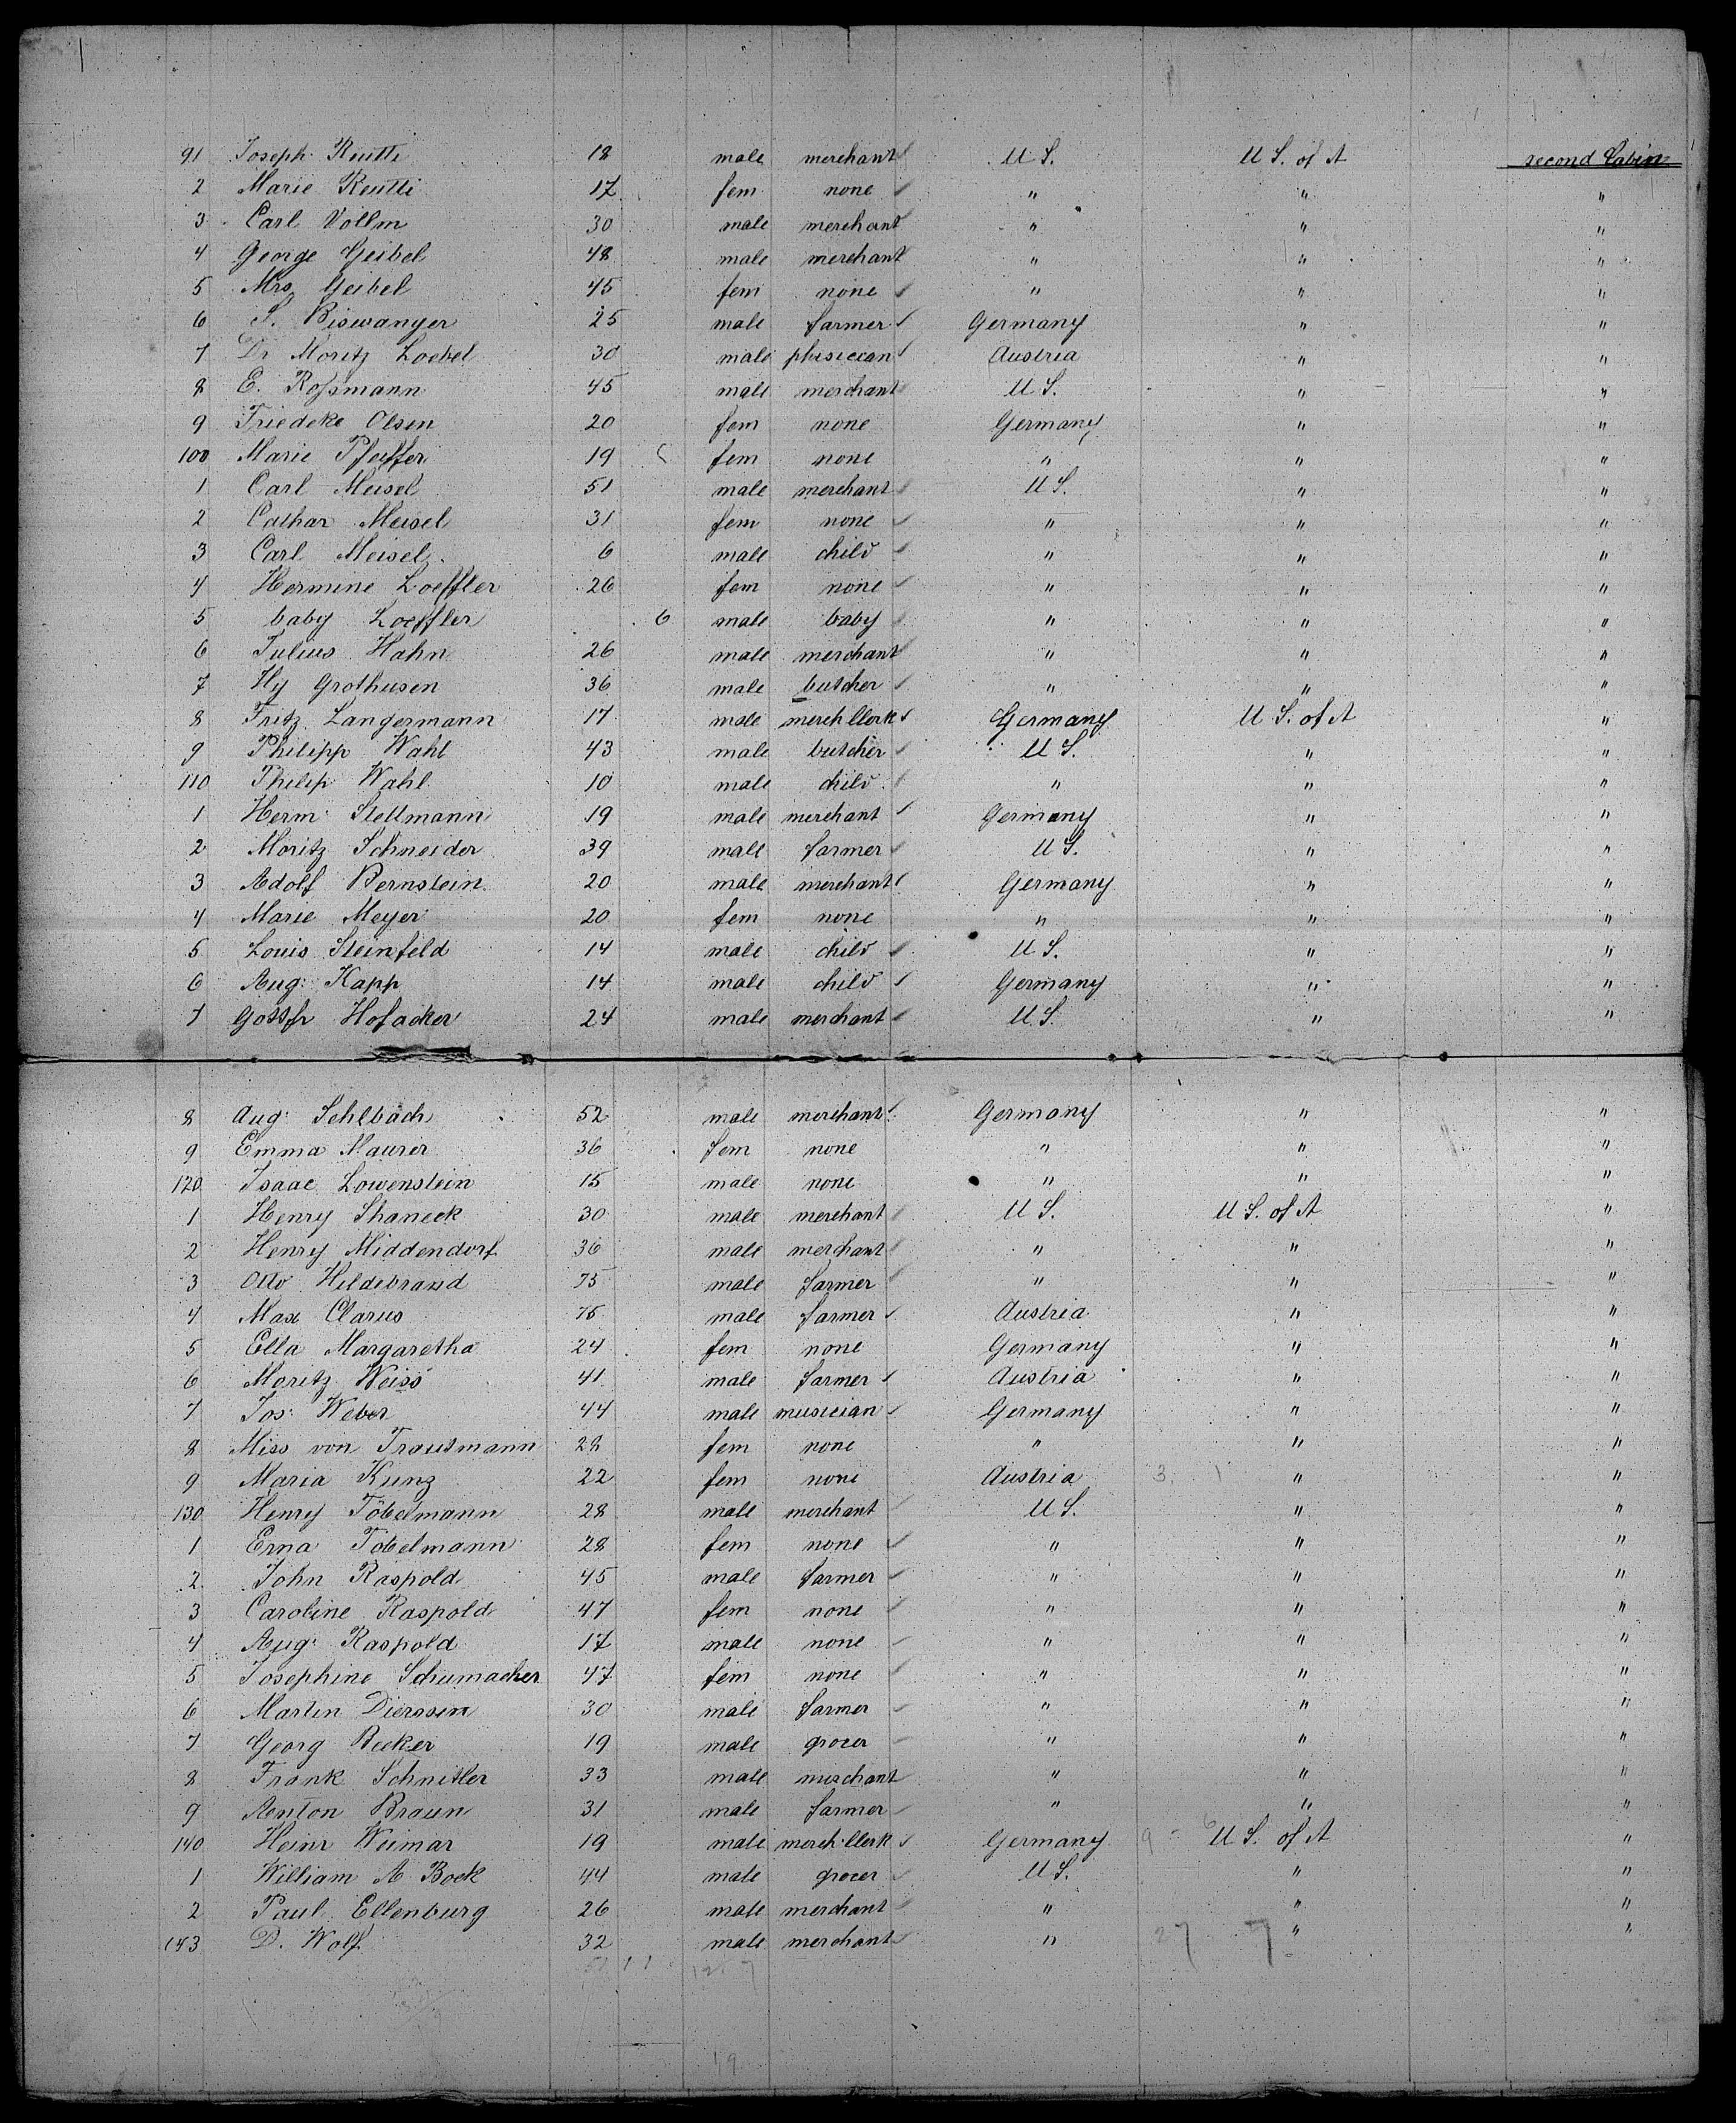 91 Joseph Reutti 18 male merchant U S. U S. of A second Cabin
2 Marie Reutti 17 fem none " " "
3 Carl Vollm 30 male merchant " " "
4 George Geibel 48 male merchant " " "
5 Mrs Geibel 45 fem none " " "
6 S. Biswanger 25 male farmer Germany " "
7 Dr Moritz Loebel 30 male phisician Austria " "
8 E. Roſsmann 45 male merchant U S. " "
9 Friedeke Olsen 20 fem none Germany " "
100 Marie Pfeiffer 19 fem none " " "
1 Carl Meisel 51 male merchant U S. " "
2 Cathar Meisel 31 fem none " " "
3 Carl Meisel 6 male child " " "
4 Hermine Loeffler 26 fem none " " "
5 baby Loeffler 6 male baby " " "
6 Julius Hahn 26 male merchant " " "
7 Hy Grothusen 36 male butcher " " "
8 Fritz Langermann 17 male merch Clerk Germany U S. of A "
9 Philipp Wahl 43 male butcher U S. " "
110 Philip Wahl 10 male child " " "
1 Herm: Stellmann 19 male merchant Germany " "
2 Moritz Schneider 39 male farmer U S. " "
3 Adolf Bernstein 20 male merchant Germany " "
4 Marie Meyer 20 fem none " " "
5 Louis Steinfeld 14 male child U S. " "
6 Aug: Kapp 14 male child Germany " "
7 Gottfr Hofacker 24 male merchant U S. " "
8 Aug: Sehlbach 52 male merchant Germany " "
9 Emma Maurer 36 fem none " " "
120 Isaac Lowenstein 15 male none " " "
1 Henry Shaneck 30 male merchant U S. U S. of A "
2 Henry Middendorf 36 male merchant " " "
3 Otto Hildebrand 75 male farmer " " "
4 Max Clarus 75 male farmer Austria " "
5 Ella Margaretha 24 fem none Germany " "
6 Moritz Weiss 41 male farmer Austria " "
7 Jos: Weber 44 male musician Germany " "
8 Miss von Trautmann 28 fem none " " "
9 Maria Kunz 22 fem none Austria 3 1 " "
130 Henry Töbelmann 28 male merchant U S. " "
1 Erna Tobelmann 28 fem none " " "
2 John Raspold 45 male farmer " " "
3 Caroline Raspold 47 fem none " " "
4 Aug: Raspold 17 male none " " "
5 Josephine Schumacher 47 fem none " " "
6 Martin Dierssen 30 male farmer " " "
7 Georg Becker 19 male grocer " " "
8 Frank Schnitler 33 male merchant " " "
9 Anton Braun 31 male farmer " " "
140 Heinr Weimar 19 male merch Clerk Germany 9 6 U S. of A "
1 William A Bock 44 male grocer U S. " "
2 Paul Ellenburg 26 male merchant " " "
143 D. Wolf 32 male merchant " 27 7 " "
19